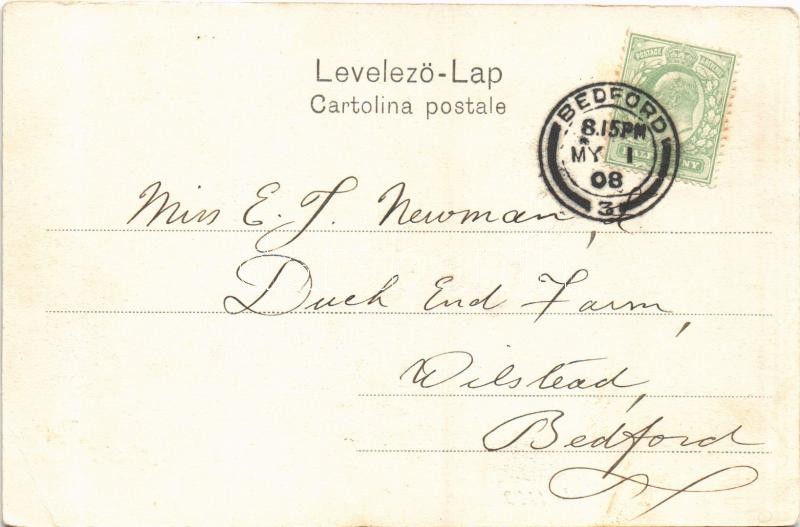 Levelezö-Lap
Cartolina postale
POSTAGE
BEDFORD
8.15PM
MY 1
08
3
Miss E. J. Newman,
Duck End Farm,
Wilstead,
Bedford